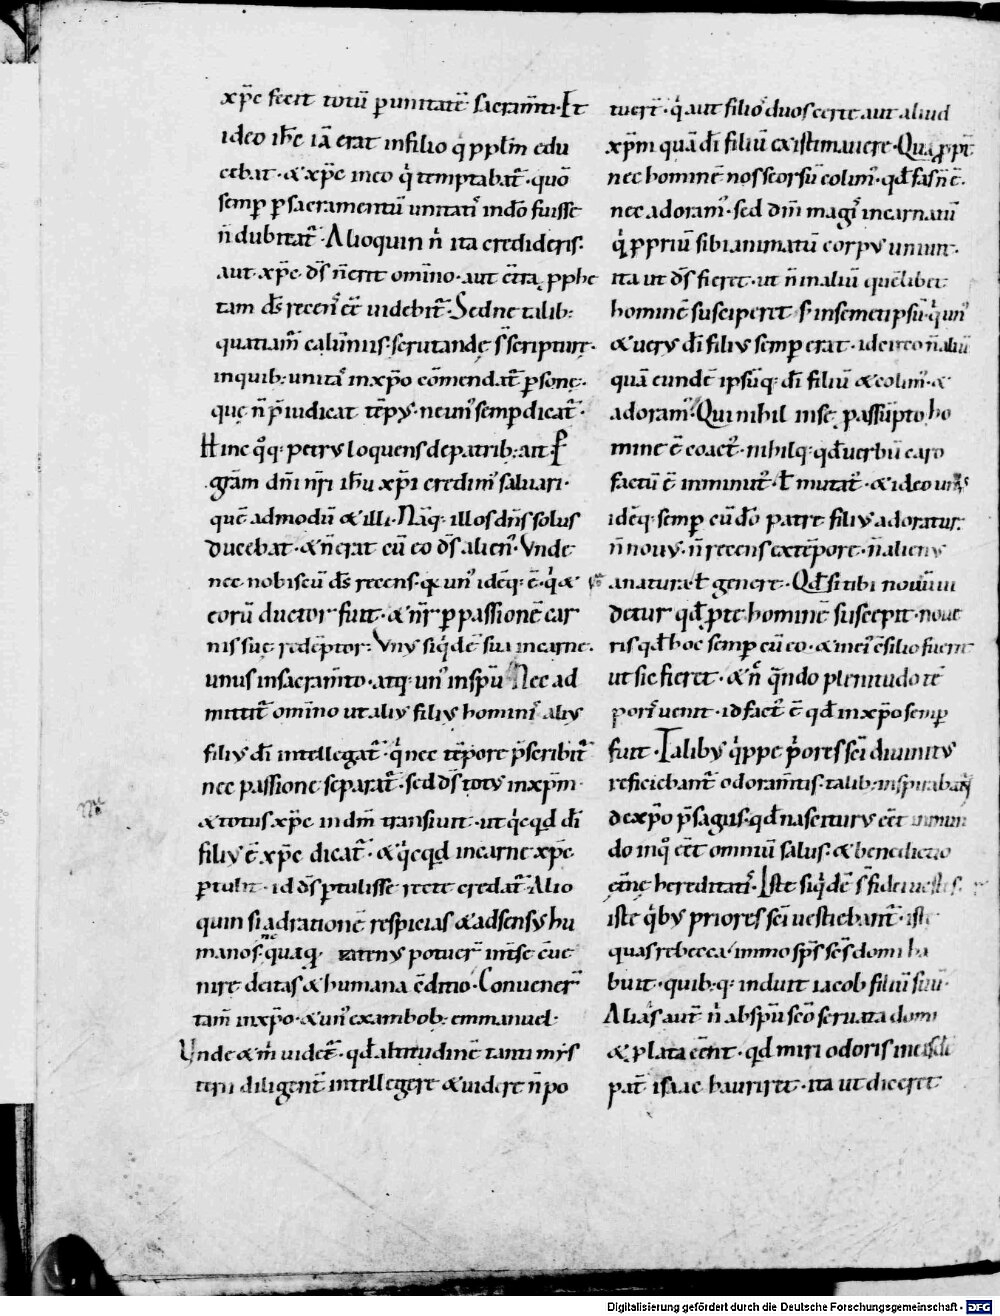 xp̄c fecit totū p unitatē sacram̄ti. Et
ideo ih̄c iā erat in filio q pplm̄ edu
cebat. & xp̄c in eo q̇ temptabat᷑. quō
semp̱ p̱ sacramentū unitatis in dō fuisse
n̄ dubitat᷑. Alioquin n̄ ita credideris.
aut xp̄c ds̄ n̄ erit om̄ino. aut cęta pphe
tam ds̄ recens eē uidebit᷑. Sed ne talib;
quatiam᷑ calūniis. scrutandę s̄ scripturę.
in quib; unitas in xp̄o cōmendat᷑ p̱sonę.
quę n̄ p̄iudicat tēpus. ne unus semp̱ dicat᷑.
Hinc qͦq; petrus loquens de patrib; ait. P̱
gr̄am dn̄i nr̄i ih̄u xp̄i credimus saluari.
quē admodū & illi. Nāq; illos dn̄s solus
ducebat. & n̄ erat cū eo ds̄ alienus. Vnde
nec nobiscū ds̄ recens. qa unus idēq; ē. q̇ &
eorū ductor fuit. & nr̄ p̱ passionē car
nis suę redēptor. Vnus siq̇dē sui in carne.
unus in sacram̄to. atq; unus in sp̄u. Nec ad
mittit᷑ om̄ino ut alius filius hominis alius
filius dī intellegat᷑. q̇ nec tēpore p̄scribit᷑
nec passione separat᷑. sed ds̄ totus in xp̄m
& totus xp̄c in dm̄ transiuit. ut q̇cqd dī
filius ē xp̄c dicat᷑. & q̇cqd in carne xp̄c
p̱tulit. id ds̄ p̱tulisse recte credat᷑. Alio
quin si ad rationē respicias & ad sensus hu
manos. quaq; nec tenus potuer̄ int̄ se cūe
nire deitas & humana cōditio. Conuener̄
tam̄ in xp̄o. & unus ex ambob; emmanuel.
Vnde & m̄ uidet᷑. qd altitudinē tanti mys
terii diligent᷑ intellegere & uidere n̄ po
tuer̄. q̇ aut filios duos certe aut aliud
xp̄m quā dī filiū existimauere. Quap̱pt᷑
nec hominē nos seorsū colimus. qd fas n̄ ē.
nec adoramus. sed dm̄ magis incarnatū
q̇ p̱priū sibi animatū corpus uniuit.
ita ut ds̄ fieret. ut n̄ in aliū quēlibet
hominē susciperet s; in semetipsū. q̇ unus
& uerus dī filius semp̱ erat. idcirco n̄ aliū
quā eundē ipsūq; dī filiū & colimus. &
adoramus. Qui nihil in se p̱ assūpto ho
mine ē coactus. nihilq; qd uerbū caro
factū ē imminutus. ł mutatus. & ideo unus
idēq; semp̱ cū dō patre filius adoratur.
n̄ nouus. n̄ recens ex tēpore. n̄ alienus
a natura ł genere. Qd si tibi nouū ui
detur qd p̱ te hominē suscepit. noue
ris qd hoc semp̱ cū eo. & in ei cōsilio fuerit
ut sic fieret. & n̄ q̄ndo plenitudo tē
poris uenit. id factū ē qd in xp̄o semp̱
fuit. Talibus q̇ppe p̄ores sc̄i diuinitus
reficiebant᷑ odoram̄tis. talib; inspirabant᷑
de xp̄o p̄sagiis. qd nasciturus eēt in mun
do in qͦ eēt omniū salus. & benedictio
ętnę hereditatis. Istę siq̇dē s̄ fidei uestes.
istę q̇bus priores sc̄i uestiebant᷑. istę
quas rebecca immo sp̄s sc̄s domi ha
buit. quib;q; induit iacob filiū suū.
Alias aut̄ n̄ ab sp̄u sc̄o seruata domi
& p̱lata eēnt. qd miri odoris in eis dū
pat̄ isaac hauriret. ita ut diceret